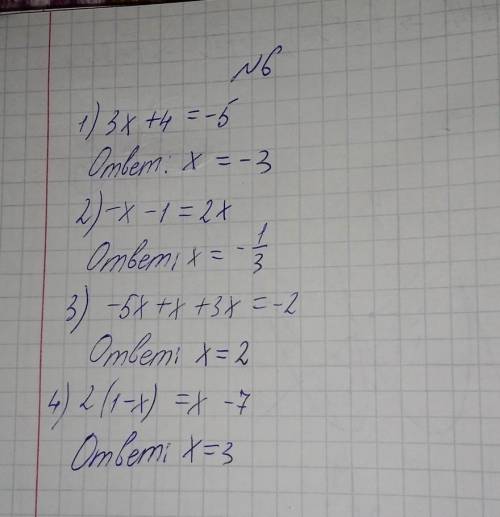 №6
1) 3x + 4 = -5
Ответ: x = -3
2) -x - 1 = 2x
Ответ: x = -1/3
3) -5x + x + 3x = -2
Ответ: x = 2
4) 2(1-x) = x - 7
Ответ: x = 3